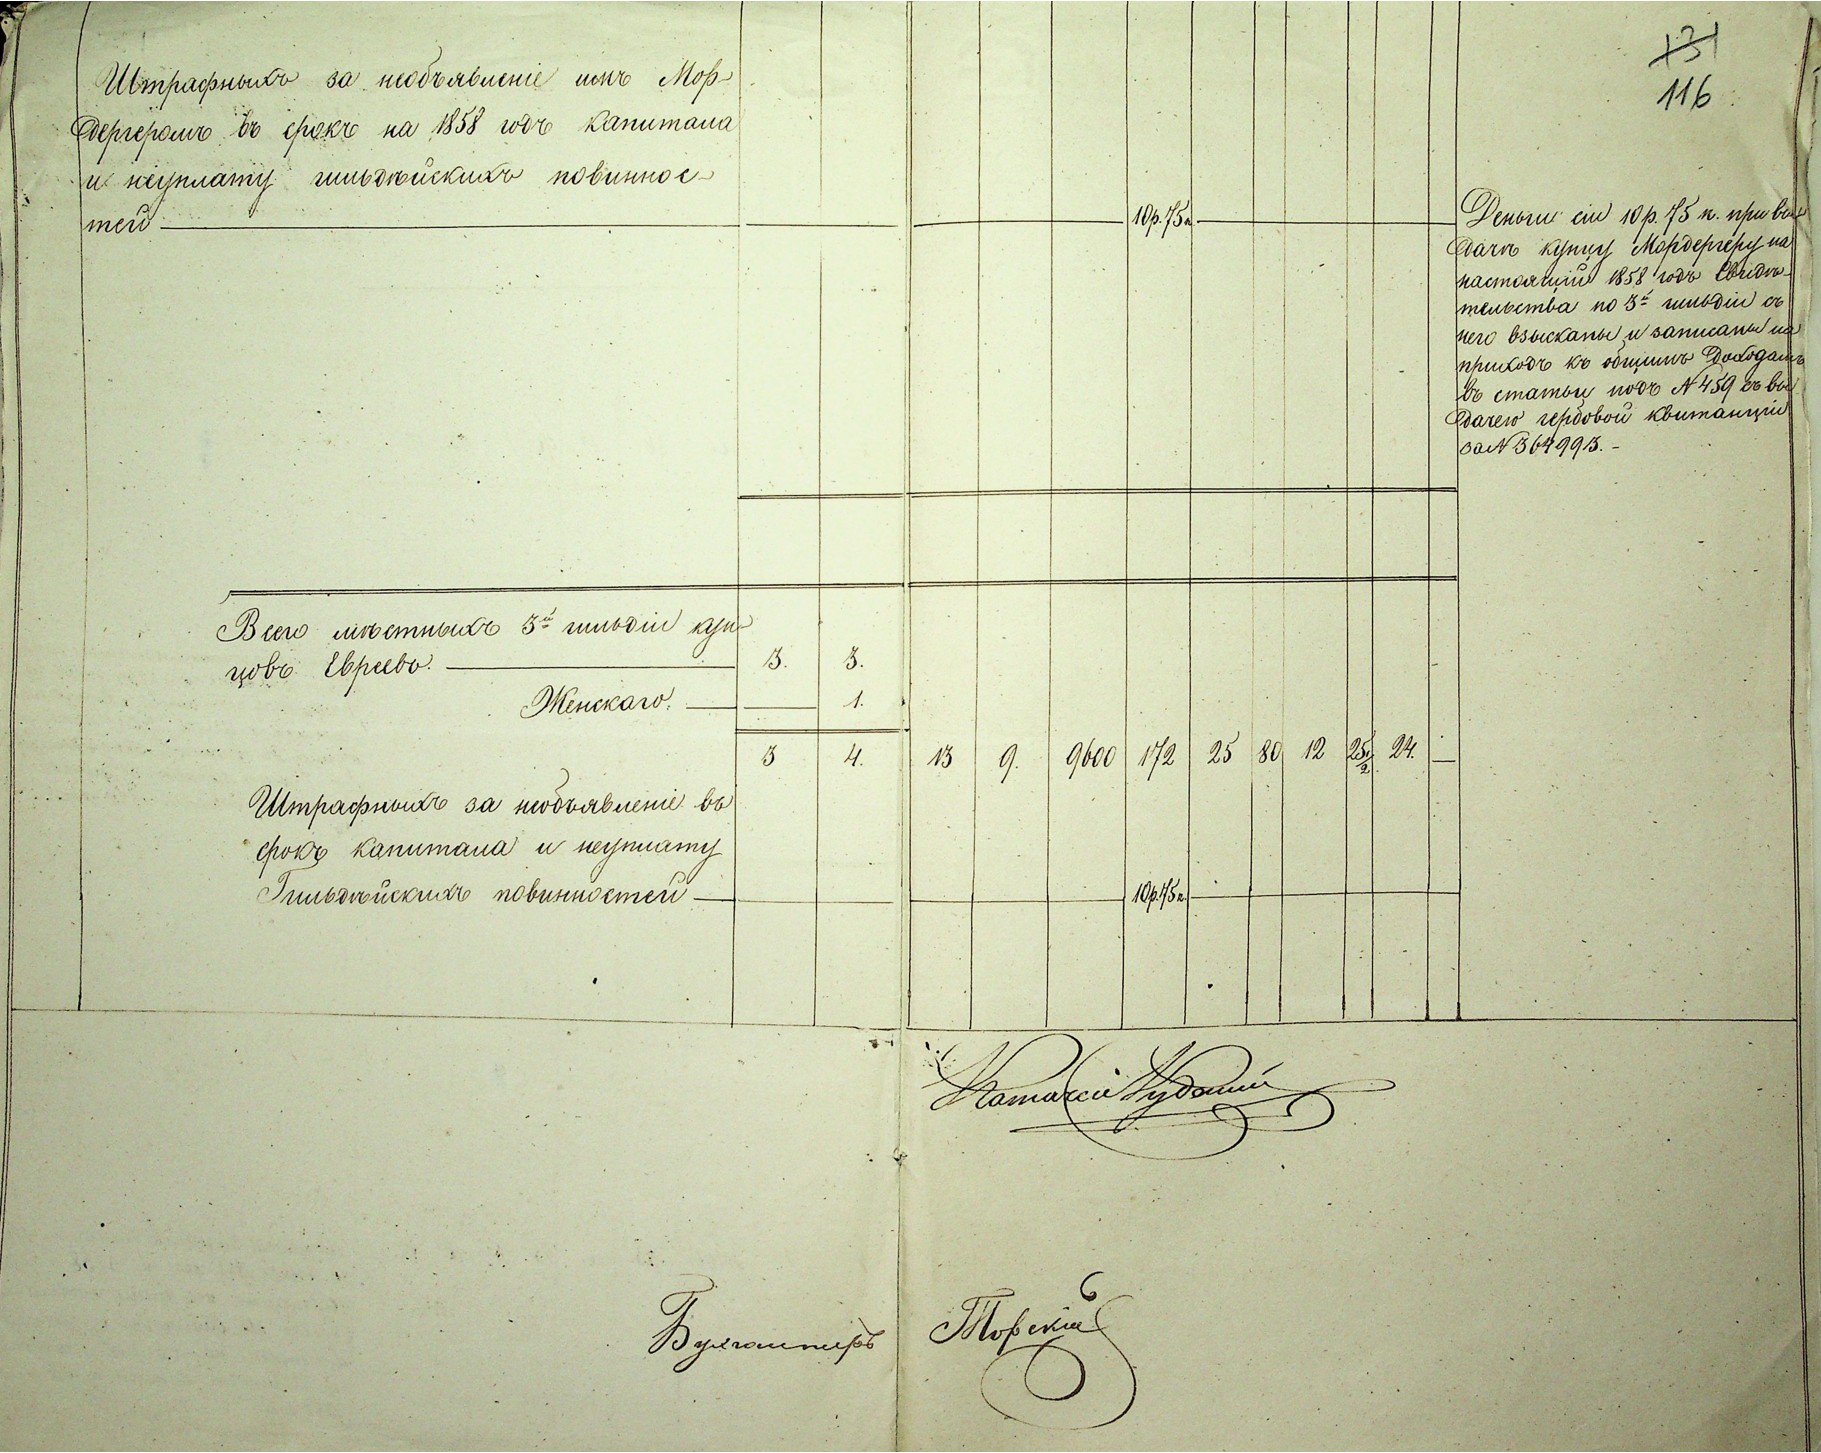 131
116
Штрафныхъ за необъявленіе имъ Мор-
дергеромъ въ срокъ на 1858 годъ капитала
и неуплату гильдѣйскихъ повиннос-
тей 10 р. 75 к.
Деньги сіи 10 р. 75 к. при вы-
дачѣ купцу Мордергеру на
настоящій 1858 годъ Свидѣ-
тельства по 3й гильдіи съ
него взысканы и записаны на
приходъ къ общимъ доходамъ
въ статьи подъ N 459 съ вы-
дачею гербовой квитанціи
за N 364993.-
Всего мѣстныхъ 3й гильдіи куп-
цовъ Евреевъ. 3. 3.
Женскаго. 1.
3 4. 13 9. 9600 172 25 80 12 25 1/2 24. —
Штрафныхъ за необъявленіе въ
срокъ капитала и неуплату
Гильдѣйскихъ повинностей 10 р. 75 к.
Бухгалтеръ Торскій